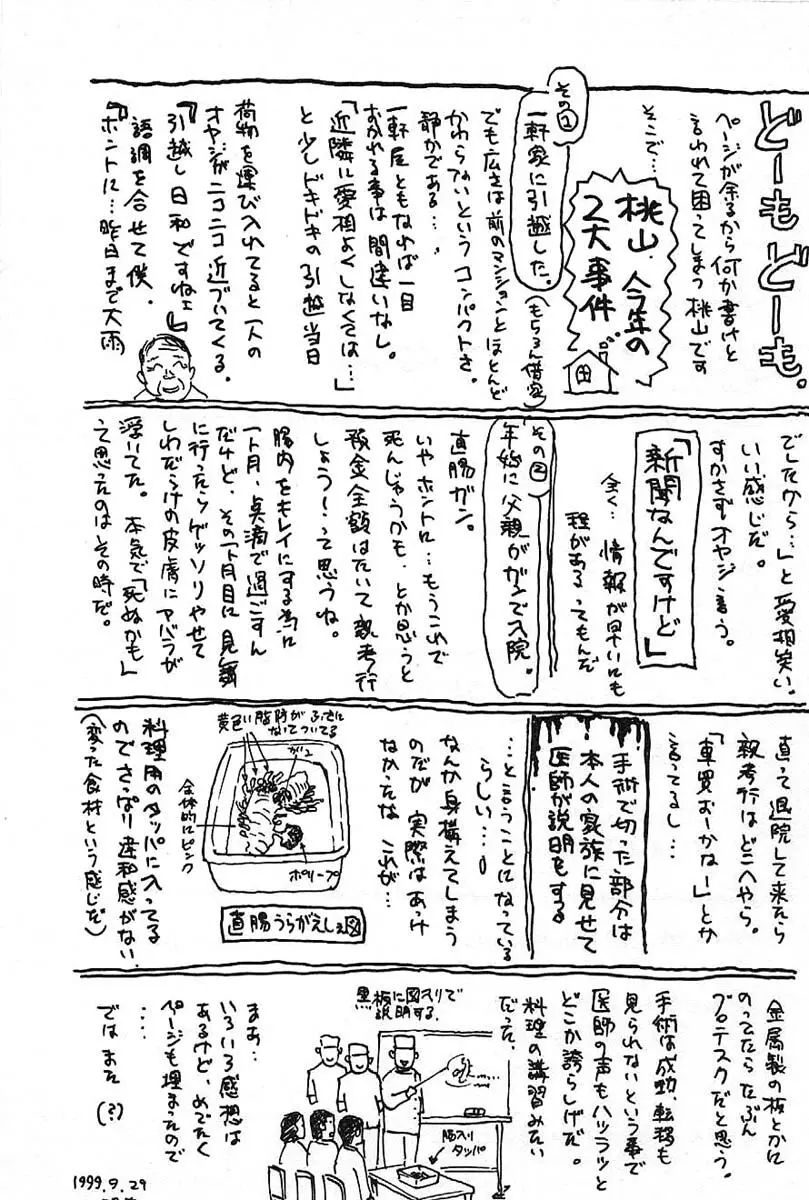 どーもどーも。
ページが余るから何か書けと
言われて困ってしまう桃山です
そこで…
桃山、今年の
2大事件
その1
一軒家に引越した。
(もちろん借家)
でも広さは前のマンションとほとんど
かわらないというコンパクトさ。
静かである…
一軒屋ともなれば一目
おかれる事は間違いなし。
「近隣に愛相よくしなくては…」
と少しドキドキの引越当日
荷物を運び入れてると一人の
オヤジがニコニコ近づいてくる。
『引越し日和ですねェ』
語調を合せて僕、
『ホントに…昨日まで大雨
でしたから…」と愛相笑い。
いい感じだ。
すかさずオヤジ言う。
「新聞なんですけど」
全く…情報が早いにも
程があるってもんだ
その2
年始に父親がガンで入院。
直腸ガン。
いやホントに…もうこれで
死んじゃうかも、とか思うと
預金全額はたいて親孝行
しょう!って思うね。
腸内をキレイにする為に
一ヶ月、点滴で過ごすん
だけど、その一ヶ月目に見舞
に行ったらゲッソリやせて
しわだらけの皮膚にアバラが
浮いてた。本気で「死ぬかも」
って思ったのはその時だ。
直って退院して来たら
親孝行はどこへやら。
「車買おーかなー」とか
言ってるし…
手術で切った部分は
本人の家族に見せて
医師が説明をする
…と言うことになっている
らしい…。
なんか身構えてしまう
のだが実際はあっけ
なかったな これが…
黄色い脂肪がふさに
なってついてる
ガン
全体的にピンク
ポリープ
直腸うらがえし図
料理用のタッパに入ってる
のでさっぱり違和感がない
(変った食材という感じだ)
金属製の板とかに
のってたらたぶん
グロテスクだと思う。
手術は成功、転移も
見られないという事で
医師の声もハツラツと
どこか誇らしげだ。
料理の講習みたい
だった。
黒板に図入りで
説明する。
腸入り
タッパ
まあ…
いろいろ感想は
あるけど、めでたく
ページも埋まったので
‥‥
ではまた(?)
1999.9.29